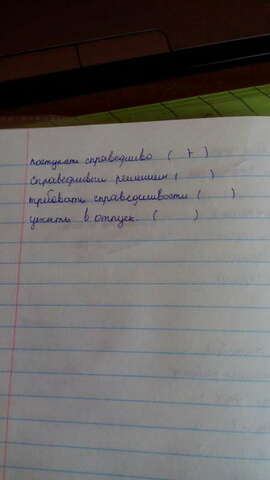 поступать справедливо ( + )
справедливый решение ( )
требовать справедливости ( )
уехать в отпуск. ( )